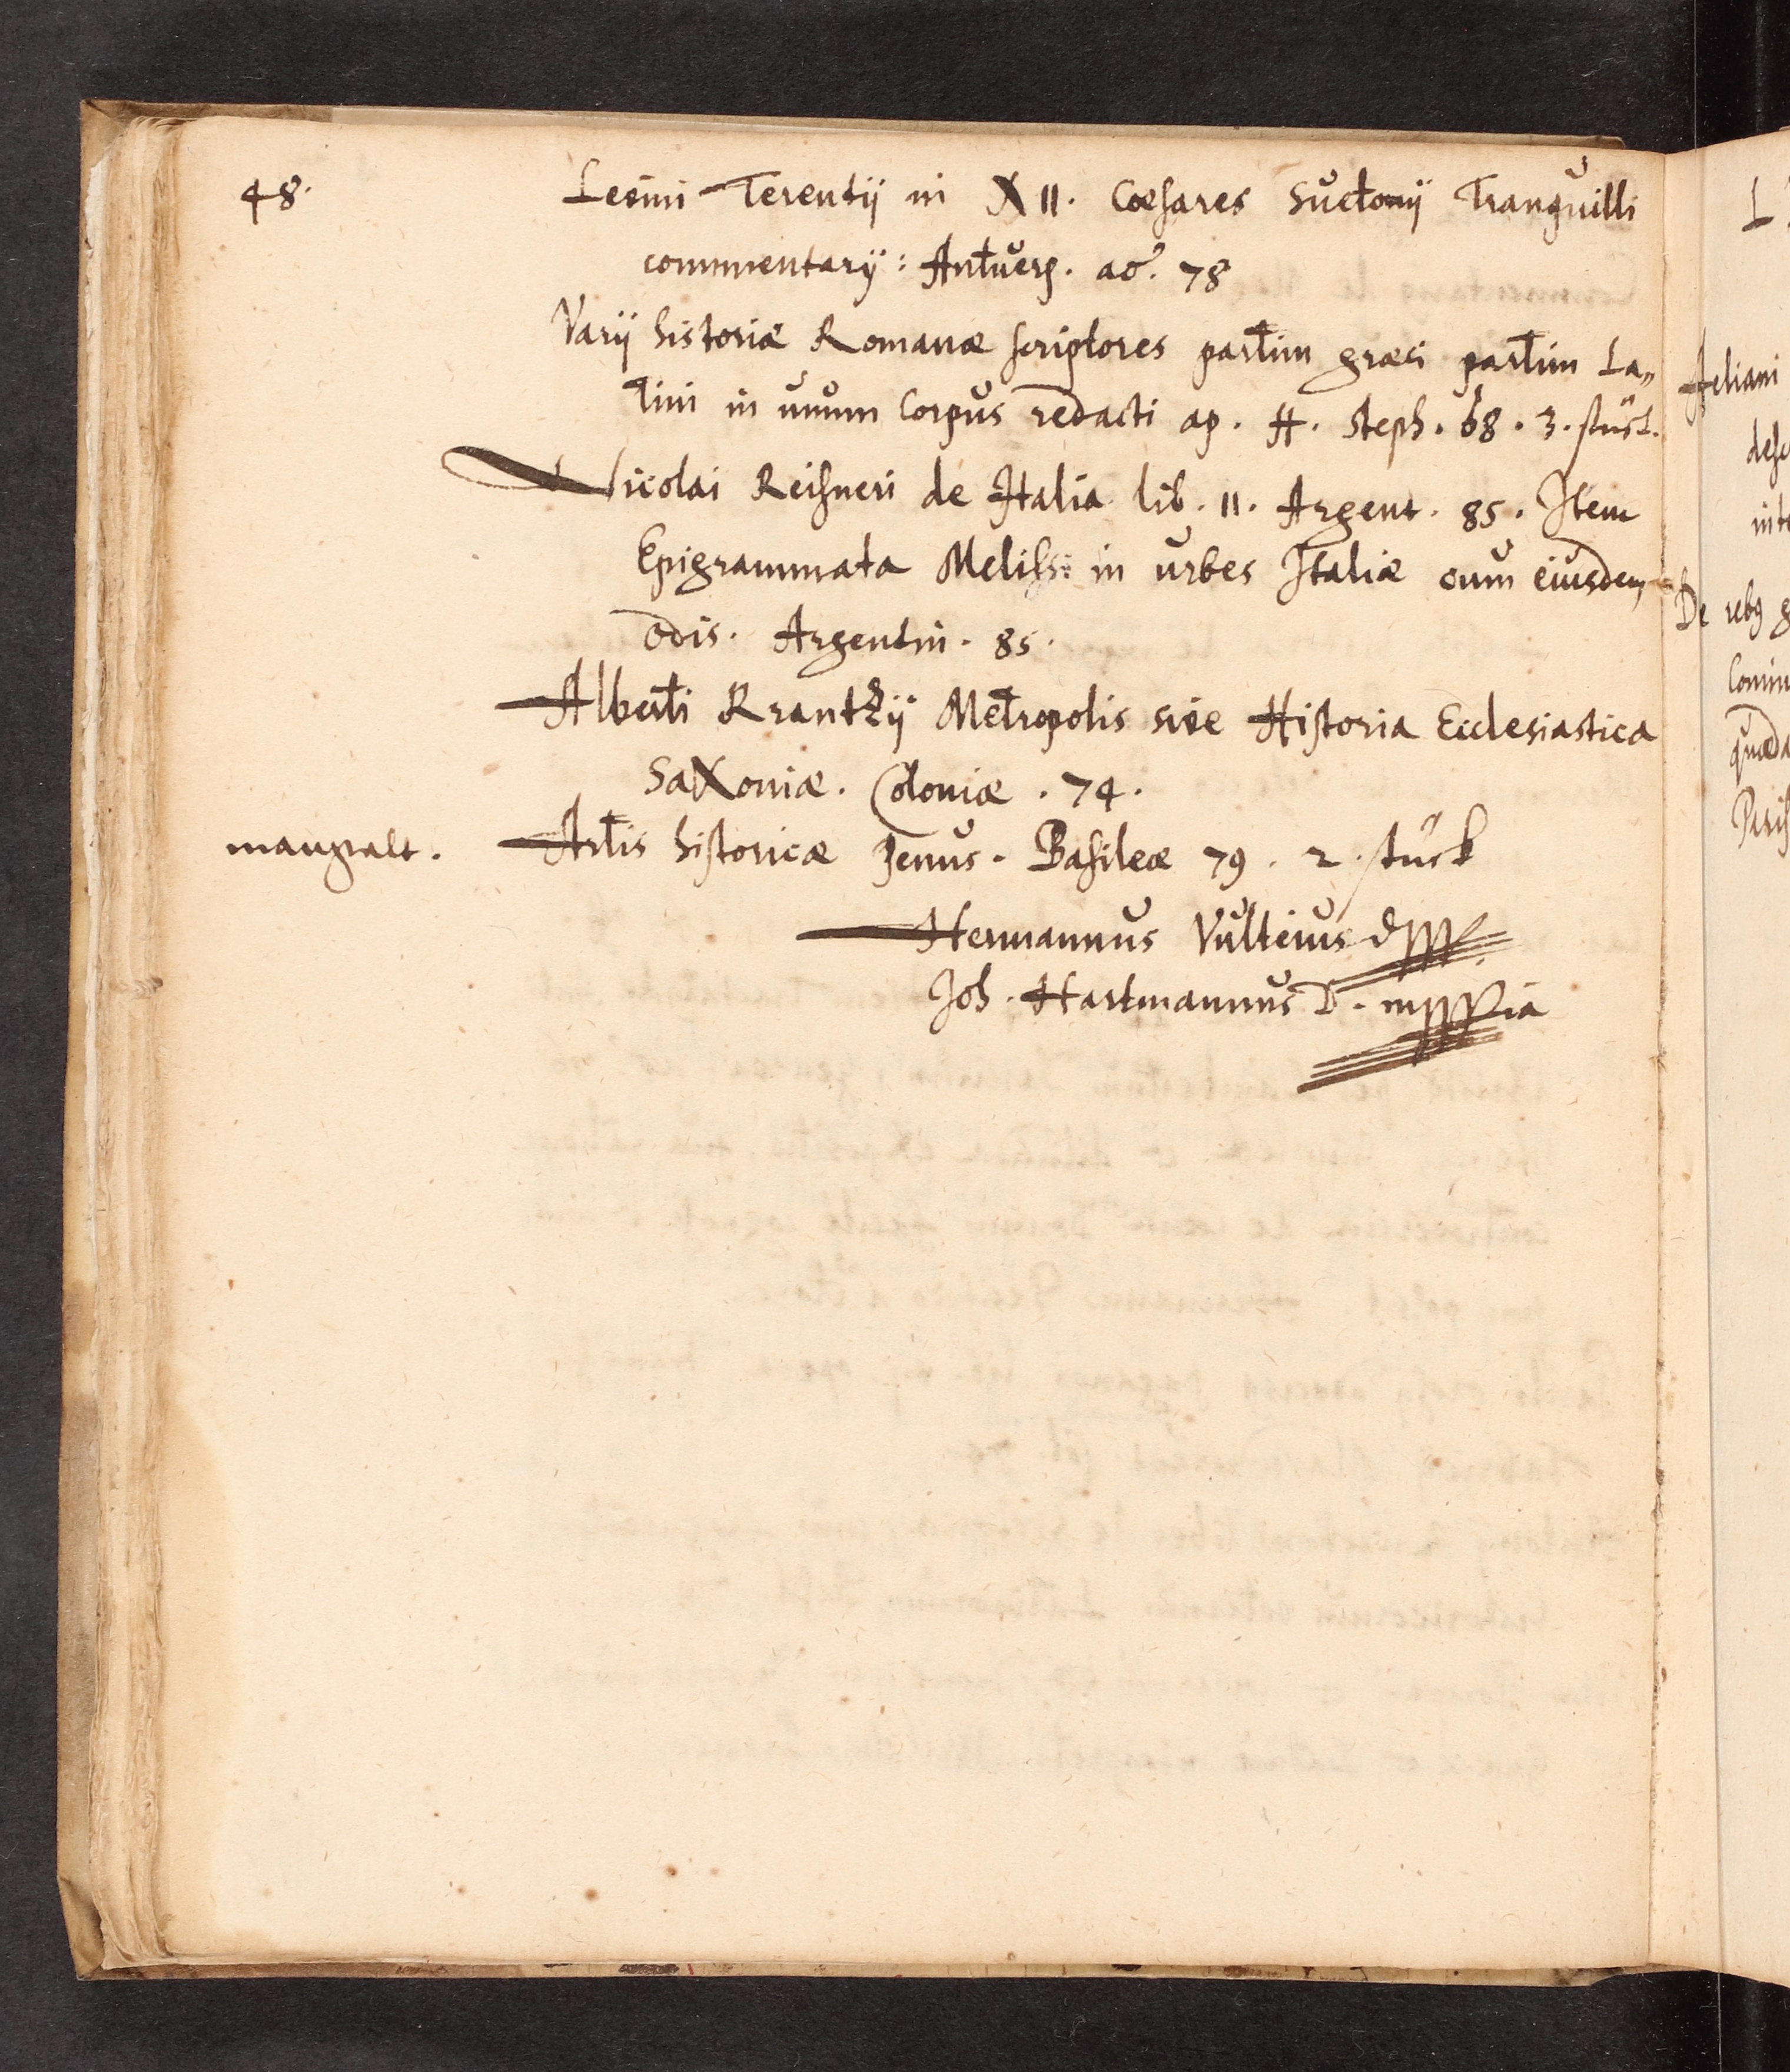 48.
Levini Terentij in XII. Cæsares Suetonij Tranquilli
commentarij: Antverp. ao. 78
Varij historiæ Romanæ scriptores partim græci partim La„
tini in unum Corpus redacti ap. H. Steph. 68. 3. stück.
Nicolai Reisneri de Italia lib. II. Argent. 85. Item
Epigrammata Melissi in urbes Italiæ cum eiusdem
odis. Argentin. 85.
Alberti Krantzij Metropolis sive Historia Ecclesiastica
Saxoniæ. Coloniæ. 74.
mangralt. Artis historicæ penus. Basileæ 79. 2. stück
Hermannus Vulteius D
Joh. Hartmannus D. mppria
Aeliani
De rebg